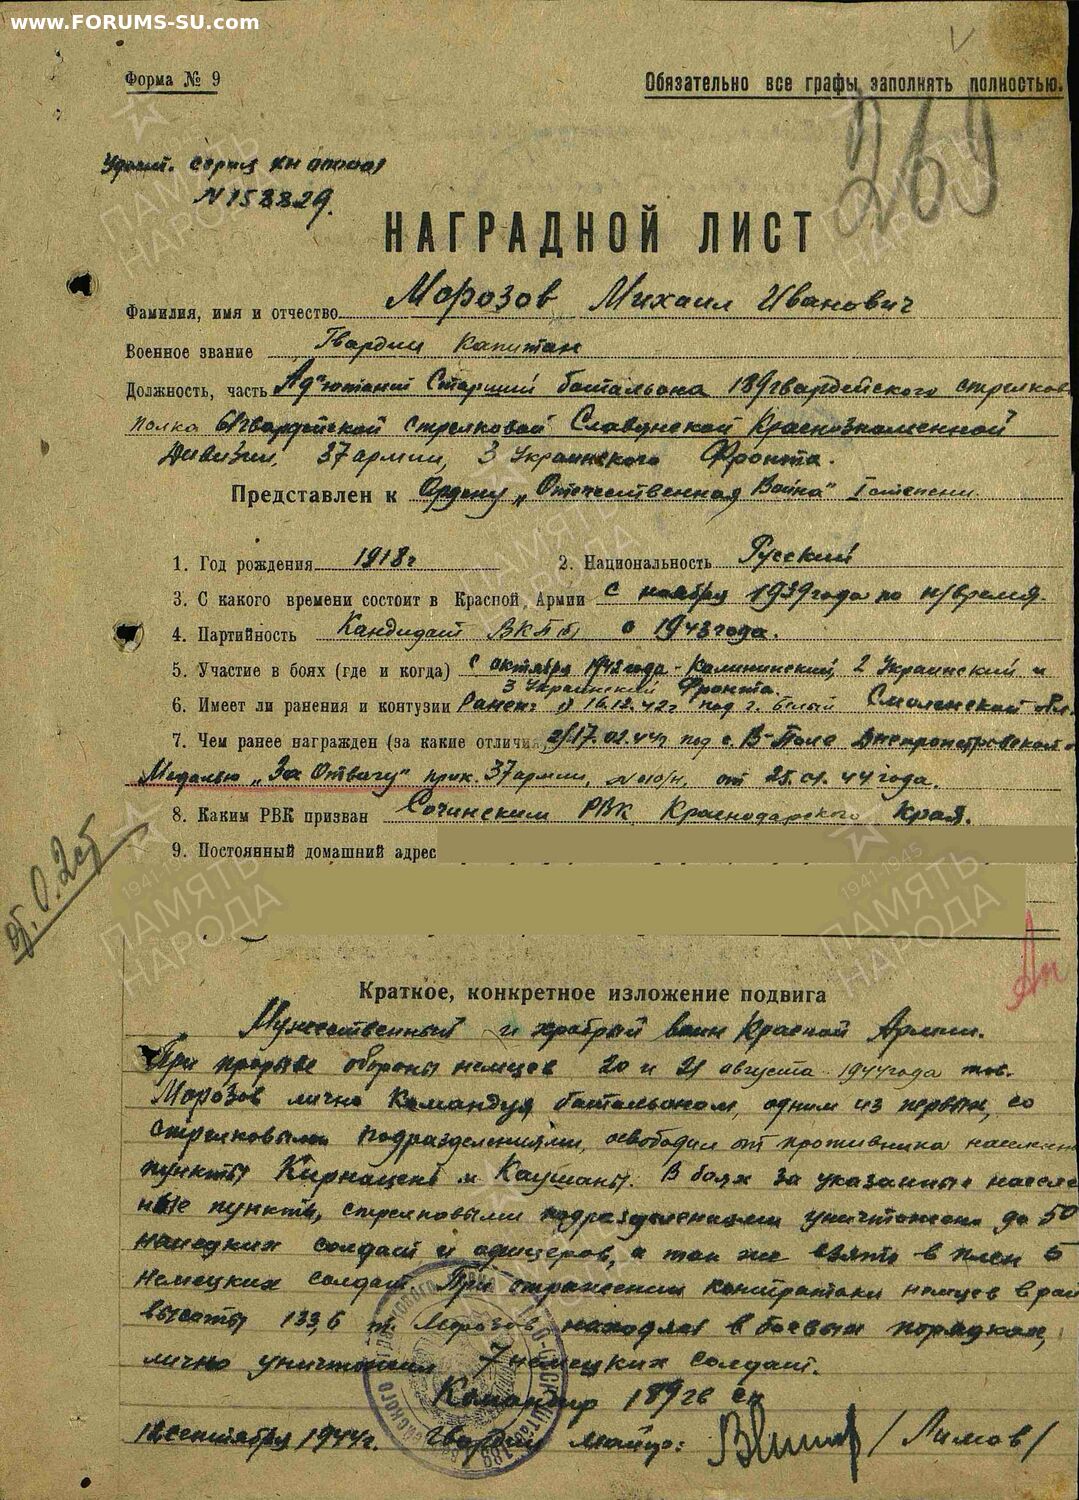 www.FORUMS-SU.com
Форма № 9
Обязательно все графы заполнять полностью.
269
Удост. серия КН
N 158829.
НАГРАДНОЙ ЛИСТ
Фамилия, имя и отчество Морозов Михаил Иванович
Военное звание Гвардии Капитан
Должность, часть Ад"ютант Старший батальона 189 гвардейского стрелков
полка 61 гвардейской стрелковой Славянской Краснознаменной
Дивизии, 37 армии, 3 Украинского Фронта.
Представлен к Ордену „Отечественная Война" I степени
1. Год рождения 1918г 2. Национальность Русский
3. С какого времени состоит в Красной Армии с ноября 1939 года по н/время.
4. Партийность Кандидат ВКП(б) с 1943 года.
5. Участие в боях (где и когда) с октября 1942 года - Калининский, 2 Украинский и
3 Украинский Фронта.
6. Имеет ли ранения и контузии Ранен: 1) 16.12.42г под г. Белый Смоленской обл.
7. Чем ранее награжден (за какие отличия 2) 17.02.44г под с. В-Поле Днепропетровской о
Медалью „За Отвагу" прик. 37 армии, N 10/н, от 25.01.44 года.
8. Каким РВК призван Сочинским РВК Краснодарского Края.
9. Постоянный домашний адрес
О. 2ст
ПАМЯТЬ
НАРОДА
1941-1945
Краткое, конкретное изложение подвига
Мужественный и храбрый воин Красной Армии.
При прорыве обороны немцев 20 и 21 августа 1944 года тов.
Морозов лично командуя батальоном, одним из первых, со
стрелковыми подразделениями, освободил от противника населен
пункты Кирнацены и Каушаны. В боях за указанные населе
ные пункты, стрелковыми подразделениями уничтожено до 50
немецких солдат и офицеров, а так же взято в плен 5
немецких солдат. При отражении контратаки немцев в рай
высоты 133,6 т. Морозов находясь в боевых порядках,
лично уничтожил 7 немецких солдат.
Командир 189 гв сп
12 сентября 1944г. Гвардии майор: /Лимов/